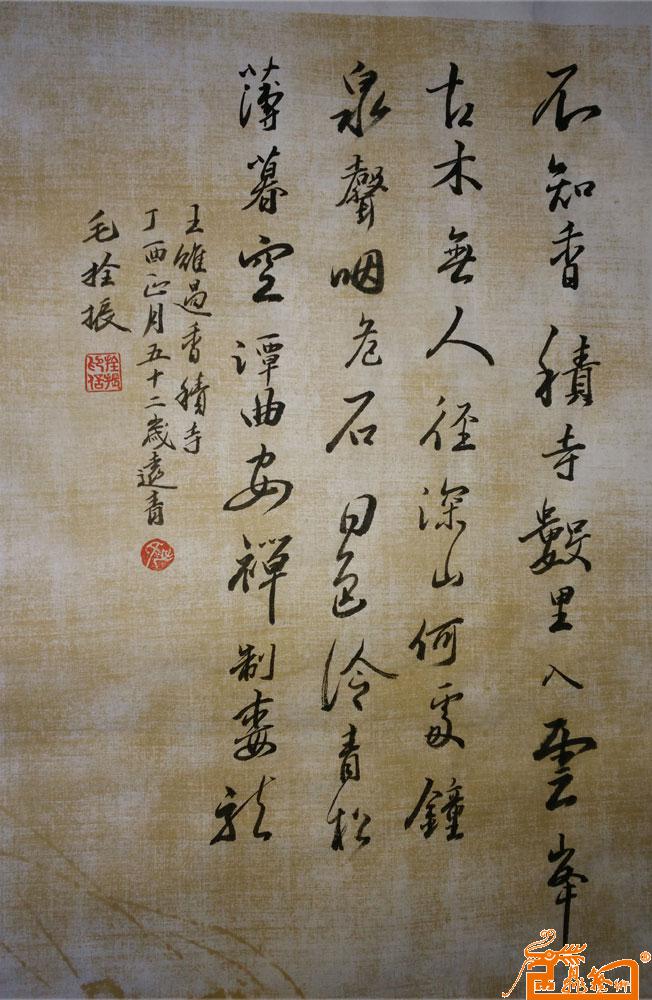 不知香積寺數里入雲峯
古木無人徑深山何處鐘
泉聲咽危石日色冷青松
薄暮空潭曲安禪制毒龍
王維過香積寺
丁酉正月五十二歲遠青
毛拴振